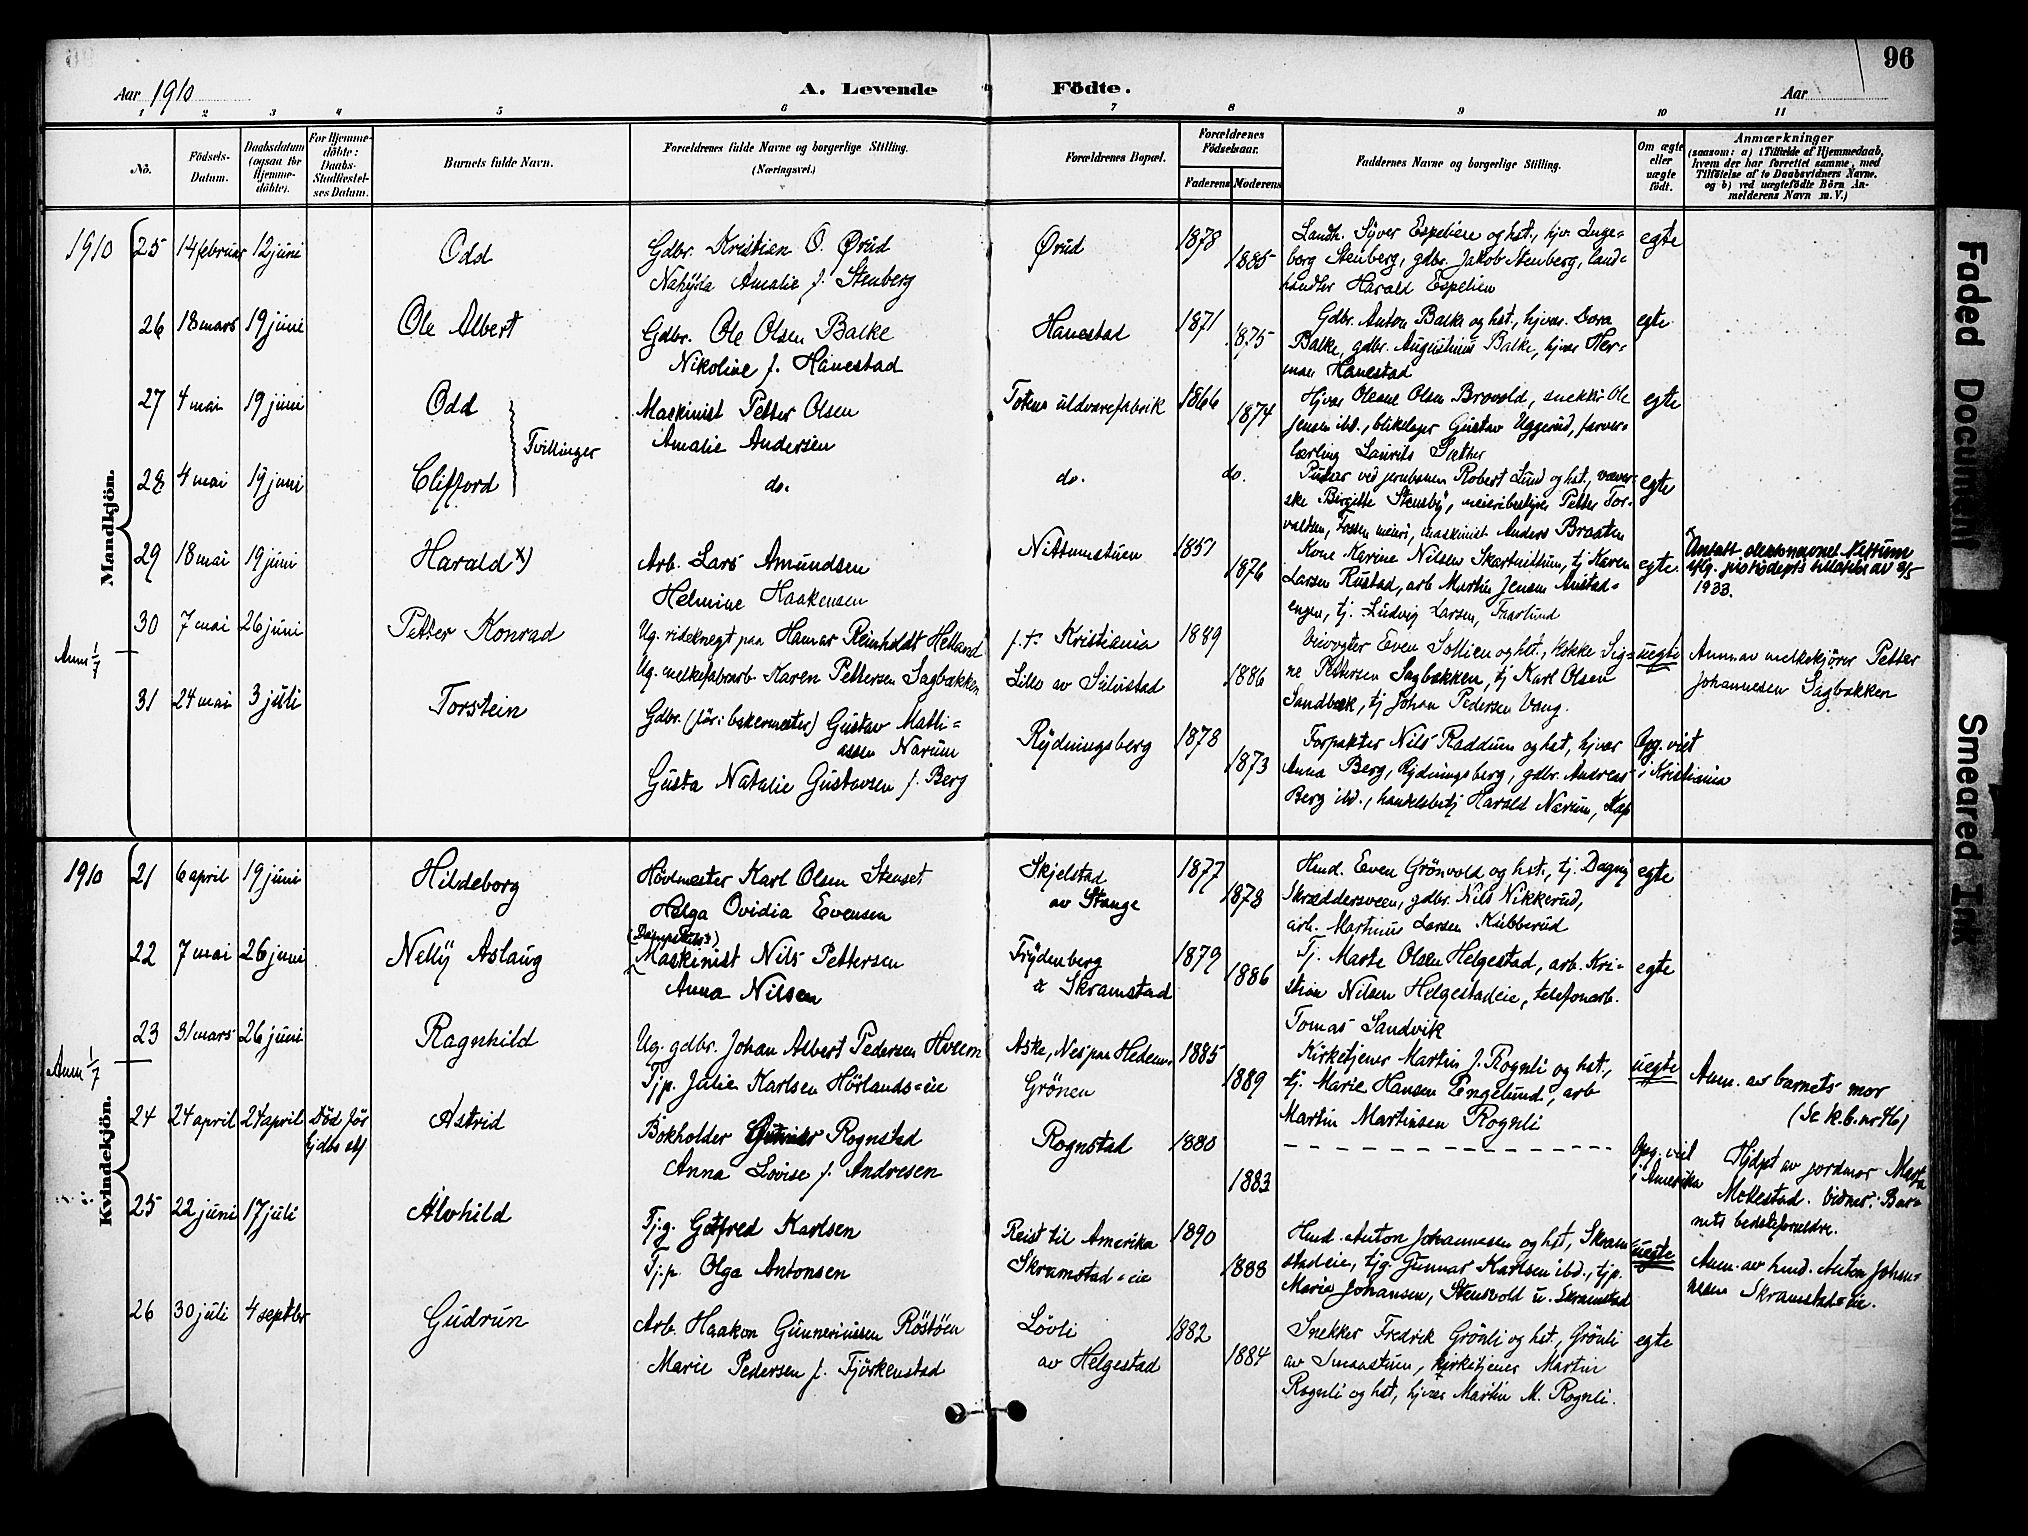 96
Aar 1910
A. Levende Födte.
Aar
1 2 3 4 5 6 7 8 9 10 11
No.
Födsels-Datum.
Daabsdatum (ogsaa for Hjemme-döbte).
For Hjemme-döbte: Daabs-Stadfæstel-ses Datum.
Barnets fulde Navn.
Forældrenes fulde Navne og borgerlige Stilling. (Næringsvei.)
Forældrenes Bopæl.
Forældrenes Födselsaar.
Faderens Moderens
Faddernes Navne og borgerlige Stilling.
Om ægte eller uægte födt.
Anmærkninger
(saasom: a) i Tilfælde af Hjemmedaab,
hvem der har forrettet samme, med
Tilföielse af to Daabsvidners Navne.
og b) ved uægtefödte Börn An-
melderens Navn m. V.)
Mandkjön.
1910 25 14 februar 12 juni Odd
Gdbr. Kristian O. Ørud
Amalie f. Stenberg
Ørud 1878 1885
Landh. Syver Espelien og hst., hjv. Inge-
borg Stenberg, gdbr. Jakob Stenberg, land-
handler Harald Espelien
egte
26 18 mars 19 juni Ole Albert
Gdbr. Ole Olsen Balke
Nikoline f. Hanestad
Hanestad 1871 1875
Gdbr. Anton Balke og hst., hjvær. Dora
Balke, gdbr. Augustinus Balke, hjvær Her-
man Hanestad
egte
27 4 mai 19 juni Odd
Tvillinger
Maskinist Petter Olsen
Amalie Andersen
Totens uldvarefabrik 1866 1874
Hjvær Oleane Olsen Brovold, snekker Ole
Jensen ibd., blikslager Gustav Uggerud, farver-
lærling Laurits Sæther
egte
28 4 mai 19 juni Clifford
do. do. do.
Pudser ved jernbanen Robert Lund og hst., væver-
ske Birgitte Stensby, meieribestyrer Petter Tor-
valdsen, Fossen meieri, maskinist Anders Braaten
egte
29 18 mai 19 juni Harald x)
Arb. Lars Amundsen
Helmine Haakensen
Nittumstuen 1851 1876
Kone Karine Nilsen Skartnittum, tj Karen
Larsen Rustad, arb Martin Jensen Anstad-
engen, tj. Ludvig Larsen, Fuarlund
egte.
x Antatt slektsnavnet Nettum
iflg. justisdepts tillatelse av 8/5
1933.
Anm 1/7
30 7 mai 26 juni Petter Konrad
Ug. rideknegt paa Hamar Reinholdt Helland
Ug. melkefabrarb. Karen Pettersen Sagbakken
f. t. Kristiania 1889
Lille av Sulustad 1886
Even Sollien og hst., kokke Sig-
ne Pettersen Sagbakken, tj Karl Olsen
Sandbæk, tj Johan Pedersen Vang.
uegte
Anm. av melkekjører Petter
Johannesen Sagbakken
31 24 mai 3 juli Torstein
Gdbr. (før: bakermester) Gustav Matti-
assen Narum
Gusta Natalie Gustavsen f. Berg
Rydningsberg 1878 1873
Forpakter Nils Raddum og hst, hjvær
Anna Berg, Rydningsberg, gdbr. Andreas
Berg ibd., handelsbetj Harald Narum, Kap
Opg. viet
i Kristiania
Kvindekjön.
1910 21 6 april 19 juni Hildeborg
Hovmester Karl Olsen Stenset
Helga Ovidia Evensen
Skjelstad
av Stange
1877 1878
Hmd. Even Grönvold og hst., tj. Dagny
Skræddersveen, gdbr. Nils Nikkerud,
arb. Martinus Larsen Kubberud
egte
22 7 mai 26 juni Nelly Aslaug
(Dampskibs)
Maskinist Nils Pettersen
Anna Nilsen
Frydenberg
a Skramstad
1879 1886
Tj. Marte Olsen Helgestad, arb. Kri-
stian Nilsen Helgestadeie, telefonarb.
Tomas Sandvik
egte
Anm 1/7
23 31 mars 26 juni Ragnhild
Ug. gdbr. Johan Albert Pedersen Hveem
Tjp. Julie Karlsen Hörlands-eie
Aske, Nes paa Hedem. 1885
Grönen 1889
Kirketjener Martin J. Rognli og hst.,
tj. Marie Hansen Engelund, arb
Martin Martinsen Rognli
uegte
Anm. av barnets mor
(Se k.b. nr 46)
24 24 april 24 april Död før hjdbs stf Astrid
Bokholder Rognstad
Anna Lovise f. Andresen
Rognstad 1880 1883
Opg. viet
i Amerika
Hjdpt av jordmor Marta
Mollestad. Vidner: Bar-
nets bedsteforældre.
25 22 juni 17 juli Alvhild
Tj.g. Gotfred Karlsen
Tj.p. Olga Antonsen
Reist til Amerika 1890
Skramstad-eie 1888
Hmd. Anton Johannesen og hst, Skram-
stadeie, tjg. Gunnar Karlsen ibd., tjp.
Marie Johansen, Stensvold u. Skramstad
uegte
Anm. av hmd. Anton Johan-
nesen Skramstad-eie.
26 30 juli 4 septbr Gudrun
Arb. Haakon Gunneriussen Röstöen
Marie Pedersen f. Fjörkenstad
Lövli
av Helgestad
1882 1884
Snekker Fredrik Grönli og hst., Grönli
av Smaastuen, kirketjener Martin
Rognli og hst, hjvær Martin M. Rognli.
egte
Faded Document
Smeared Ink